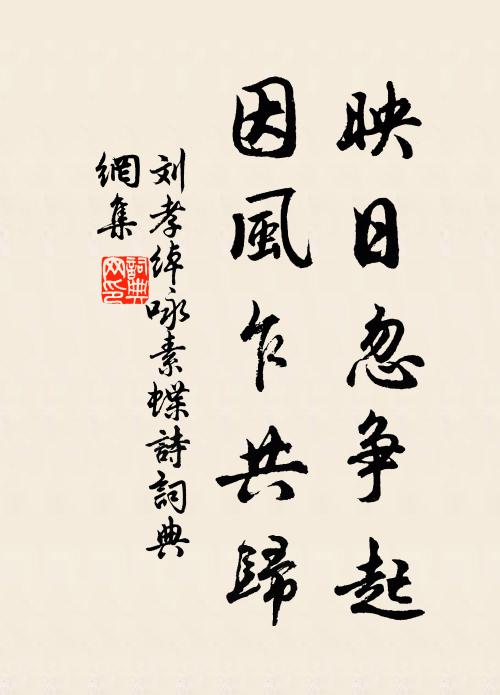 映日忽争起
因風乍共歸
刘孝綽咏素蝶詩詞典
網集
詞典
网印